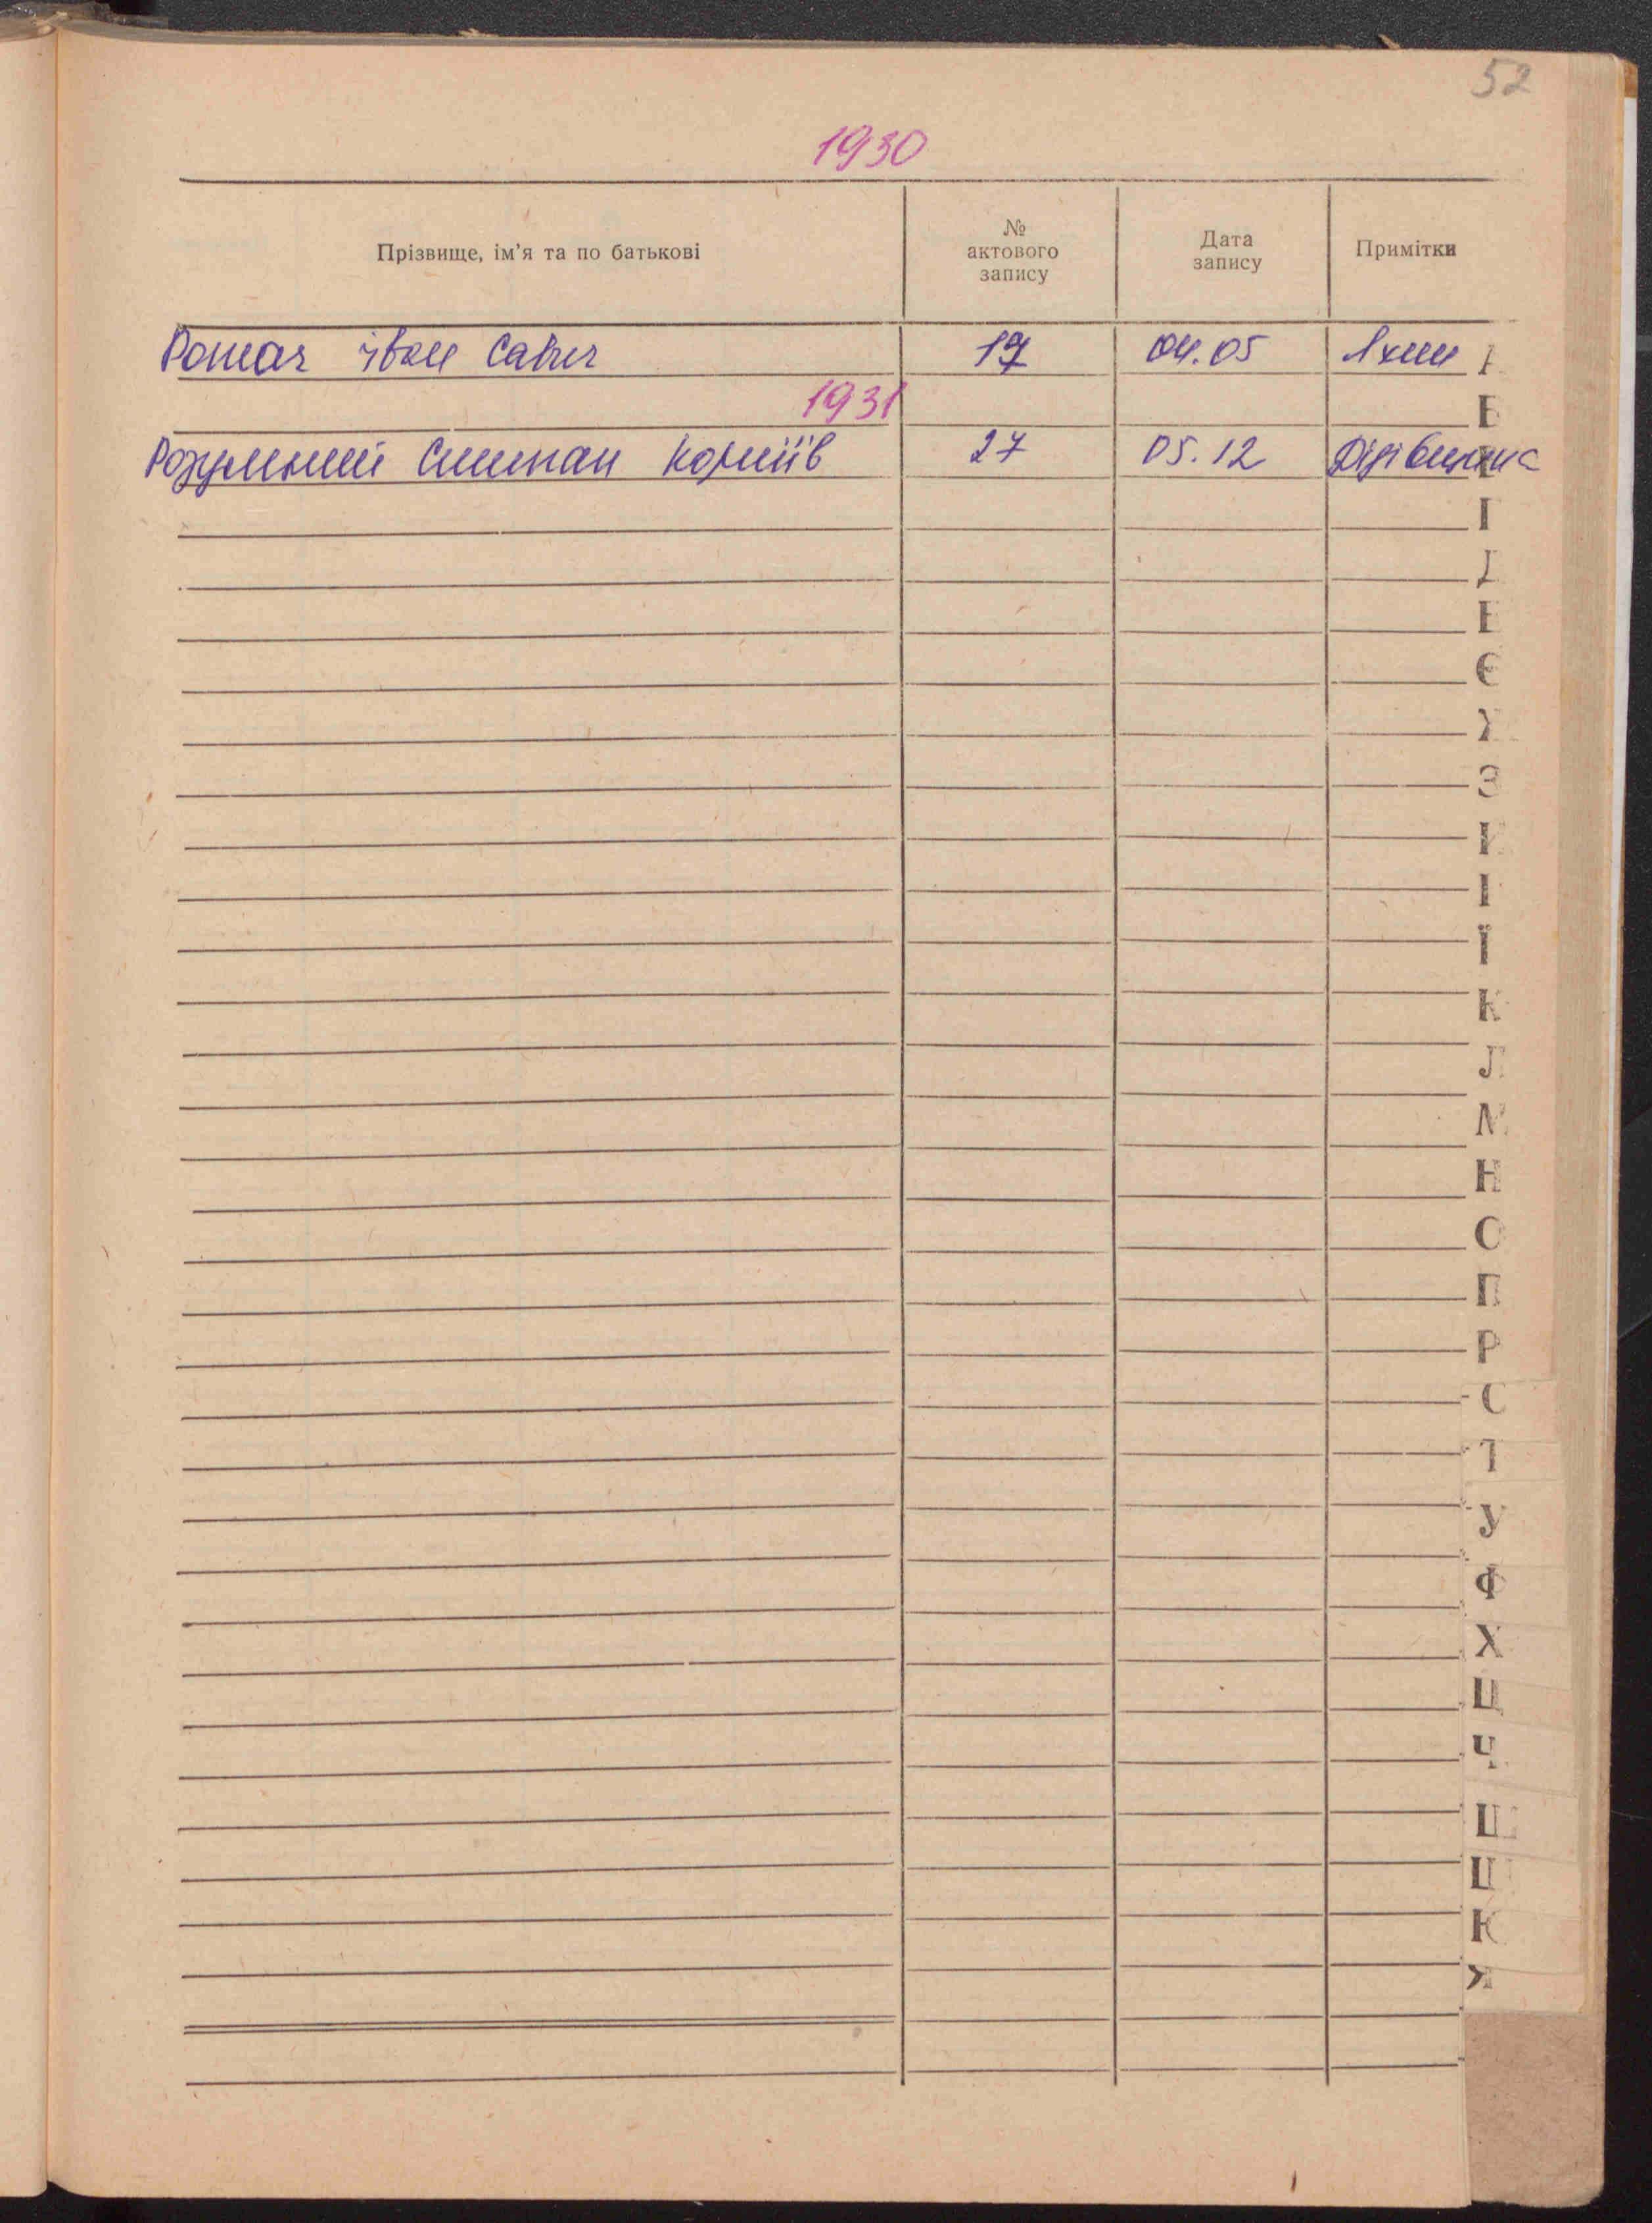 52
1930
Прізвище, ім'я та по батькові
№ актового запису
Дата запису
Примітки
Ромаз Іван 17 04.05
1931
Розумний Степан Корніїв 27 05.12 Дідівщина
А
Б
В
Г
Д
Е
Є
Ж
З
И
І
Ї
К
Л
М
Н
О
П
Р
С
Т
У
Ф
Х
Ц
Ч
Ш
Щ
Ю
Я